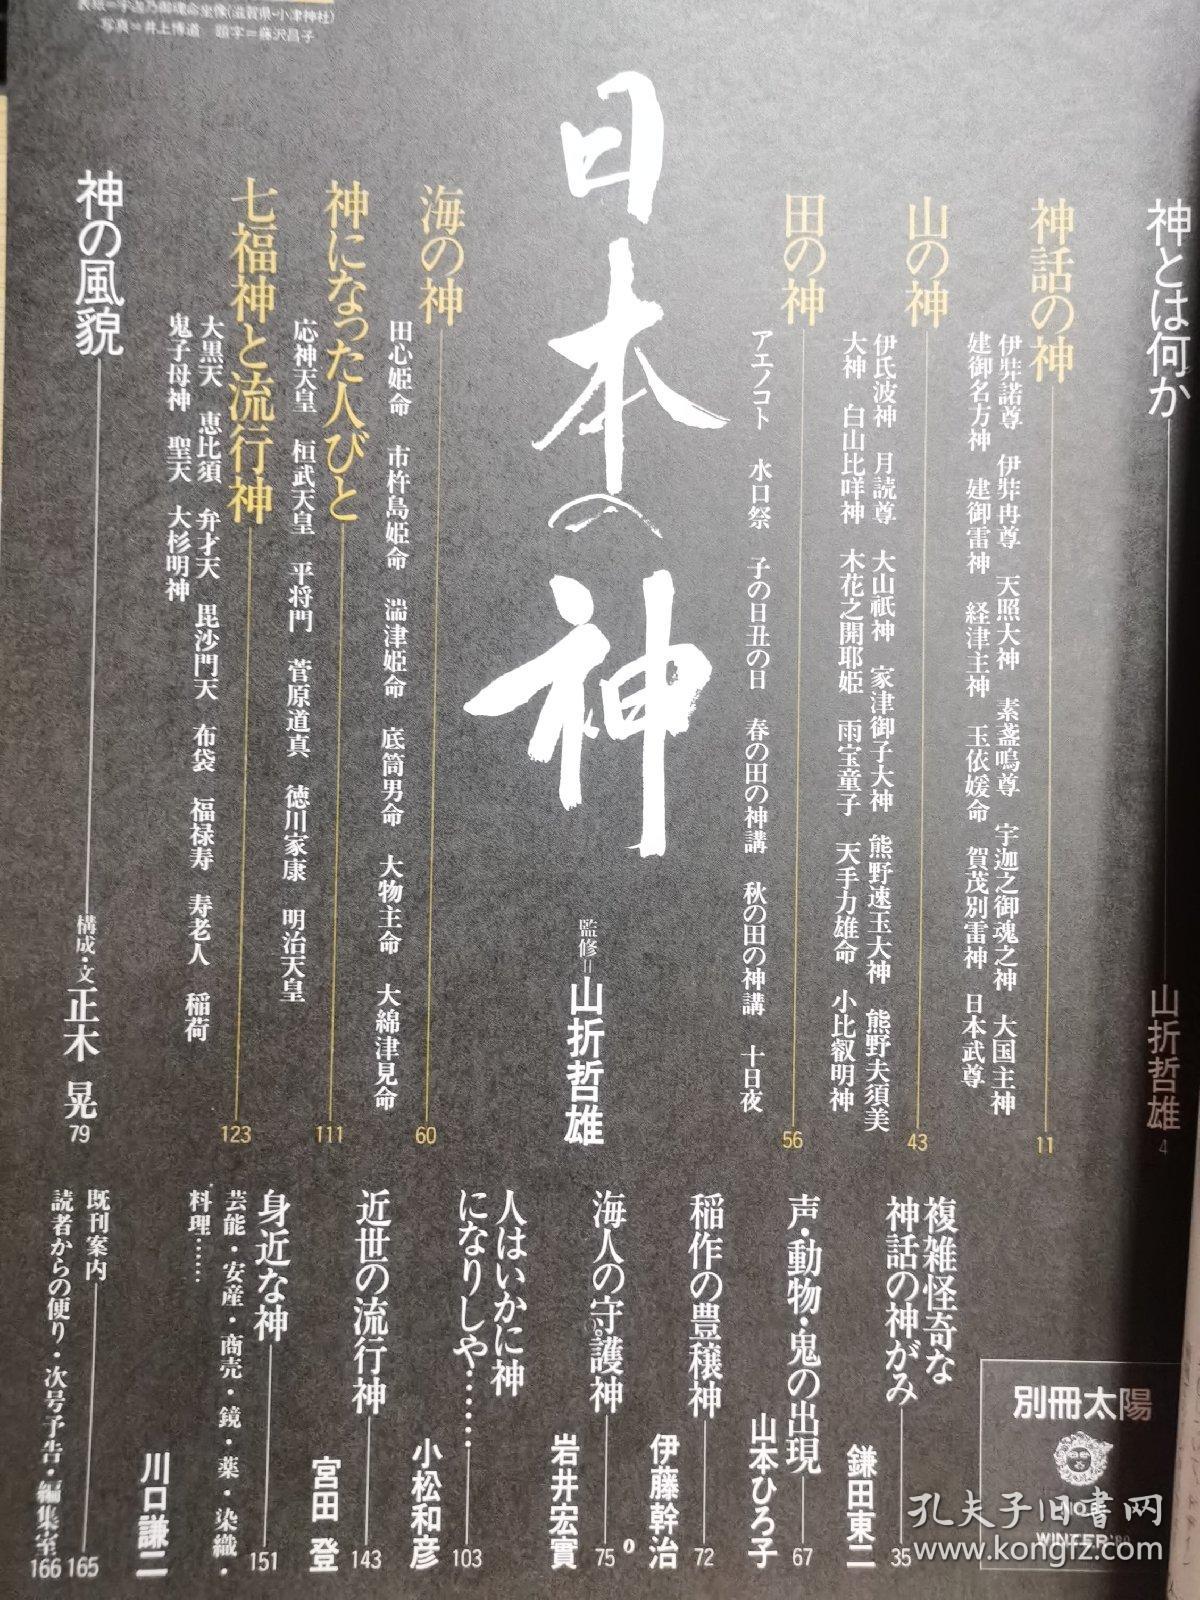 神とは何か 山折哲雄 4
神話の神 11
伊弉諾尊 伊弉冉尊 天照大神 素盞嗚尊 宇迦之御魂之神 大国主神
建御名方神 建御雷神 経津主神 玉依媛命 賀茂別雷神 日本武尊
山の神 43
伊氐波神 月読尊 大山祇神 家津御子大神 熊野速玉大神 熊野夫須美
大神 白山比咩神 木花之開耶姫 雨宝童子 天手力雄命 小比叡明神
田の神 56
アエノコト 水口祭 子の日丑の日 春の田の神講 秋の田の神講 十日夜
日本の神
監修=山折哲雄
海の神 60
田心姫命 市杵島姫命 湍津姫命 底筒男命 大物主命 大綿津見命
神になった人びと 111
応神天皇 桓武天皇 平将門 菅原道真 徳川家康 明治天皇
七福神と流行神 123
大黒天 恵比須 弁才天 毘沙門天 布袋 福禄寿 寿老人 稲荷
鬼子母神 聖天 大杉明神
神の風貌 構成・文 正木 晃 79
表紙=宇迦乃御魂命坐像(滋賀県・小津神社)
写真=井上博道 題字=藤沢昌子
複雑怪奇な
神話の神がみ 鎌田東二 35
声・動物・鬼の出現 山本ひろ子 67
稲作の豊穣神 伊藤幹治 72
海人の守護神 岩井宏實 75
人はいかに神
になりしや…… 小松和彦 103
近世の流行神 宮田 登 143
身近な神 151
芸能・安産・商売・鏡・薬・染織・
料理…… 川口謙二
既刊案内 165
読者からの便り・次号予告・編集室 166
別冊太陽
WINTER
孔夫子旧书网
www.kongfz.com